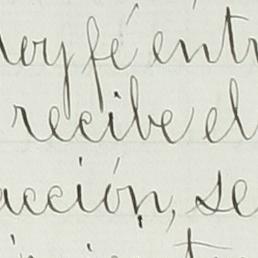 doy fé entr
recibe el
acción, se